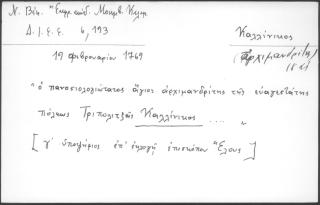 Ν. Βέη. "Εκφρ. κώδ. Μητρ. Μονεμβ.
Δ.Ι.Ε.Ε. 6, 193
Καλλίνικος
(ἀρχιμανδρίτης)
19 φεβρουαρίου 1769
"ὁ πανοσιολογιώτατος ἅγιος ἀρχιμανδρίτης τῆς εὐαγεστάτης
πόλεως Τριπολιτζᾶς Καλλίνικος .... "
[γ' ὑποψήφιος ἐπ' ἐκλογῇ ἐπισκόπου Ἕλους]